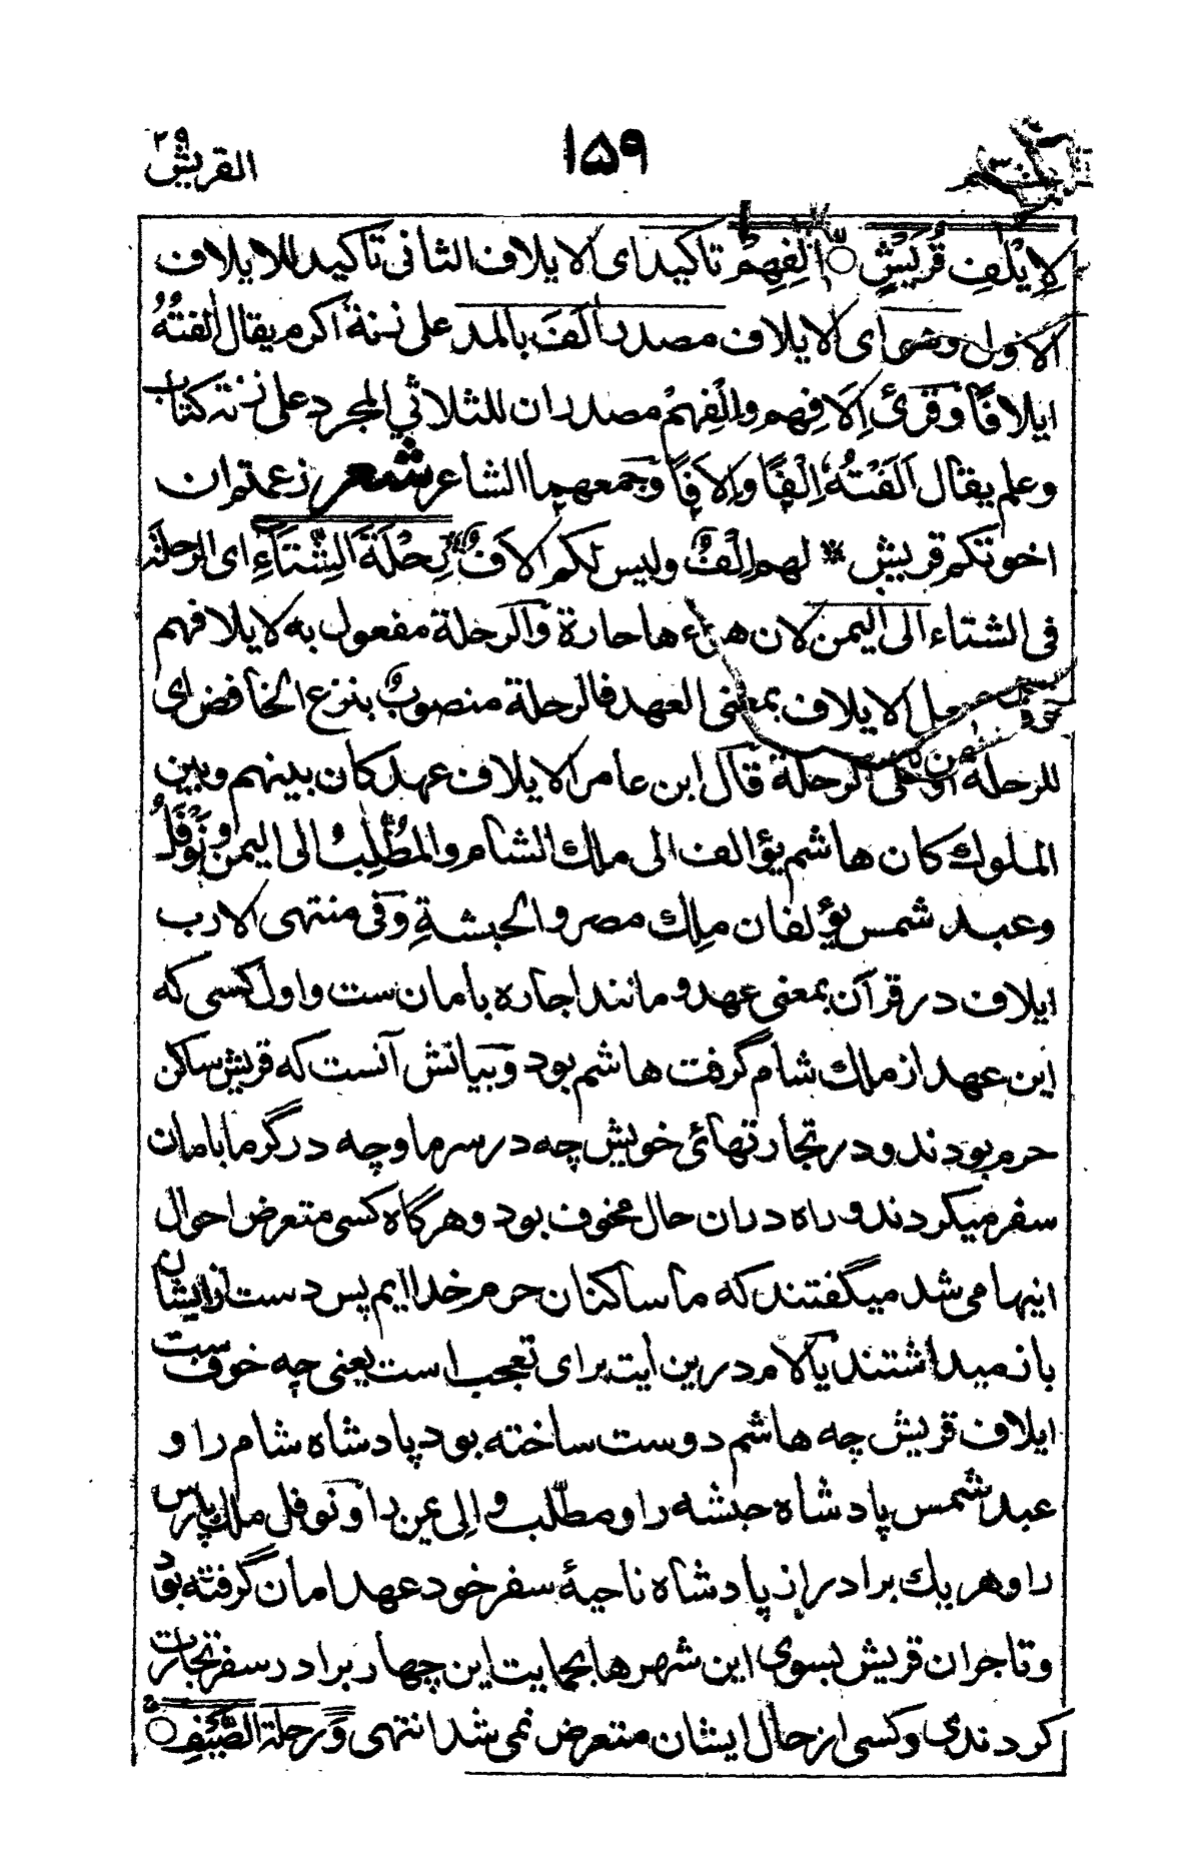 القريش ٢٩
١٥٩
لِاِيْلٰفِ قُرَيْشٍ ○ اٖلٰفِهِمْ تاكيد اى لايلاف الثانى تاكيد للايلاف
الاول اى لايلاف مصدر اٰلَفَ بالمد على زنة اكرم يقال اٰلفتهُ
ايلافًا وقرئ اِلَافِهِم واِلْفِهِمْ مصدران للثلاثي المجرد على زنة كتاب
وعلم يقال اَلَفْتُهٗ اِلْفًا واِلَافًا وجمعهما الشاعر شعر زعمتم ان
اخوتكم قريش * لهم اِلْفٌ وليس لكم اِلَافٌ * رِحْلَةَ الشِّتَآءِ اى الرحلة
فى الشتاء الى اليمن لان هواءها حارة والرحلة مفعول به لايلافهم
الايلاف بمعنى العهد فالرحلة منصوبٌ بنزع الخافض اى
للرحلة او على الرحلة قال ابن عامر الايلاف عهد كان بينهم وبين
الملوك كان هاشم يؤالف الى ملك الشام والمُطَّلِبُ الى اليمن ونَوْفَلُ
وعبد شمس يؤلفان ملك مصر والحبشةِ وفى منتهى الارب
ايلاف در قرآن بمعنى عهد و مانند اجاره بامان ست واول كسى كه
اين عهد از ملك شام گرفت هاشم بود وبيانش آنست كه قريش ساكن
حرم بودند و در تجارتهائ خويش چه در سرما وچه در گرما بامان
سفر ميكردند و راه دران حال مخوف بود وهرگاه كسى متعرض احوال
اينها مى شد ميگفتند كه ما ساكنان حرم خداايم پس دست ازايشان
باز ميداشتند يالام درين ايت براى تعجب است يعنى چه خوف ست
ايلاف قريش چه هاشم دوست ساخته بود پادشاه شام را و
عبد شمس پادشاه حبشه را و مطّلب والى عين را و نوفل ملك پارس
را وهر يك برادر از پادشاه ناحيۀ سفر خود عهد امان گرفته بود
وتاجران قريش بسوى اين شهرها بحمايت اين چهار برادر سفر تجارت
كردندى وكسى از حال ايشان متعرض نمى شد انتهى وَرحلة الصَّيْفِ ○